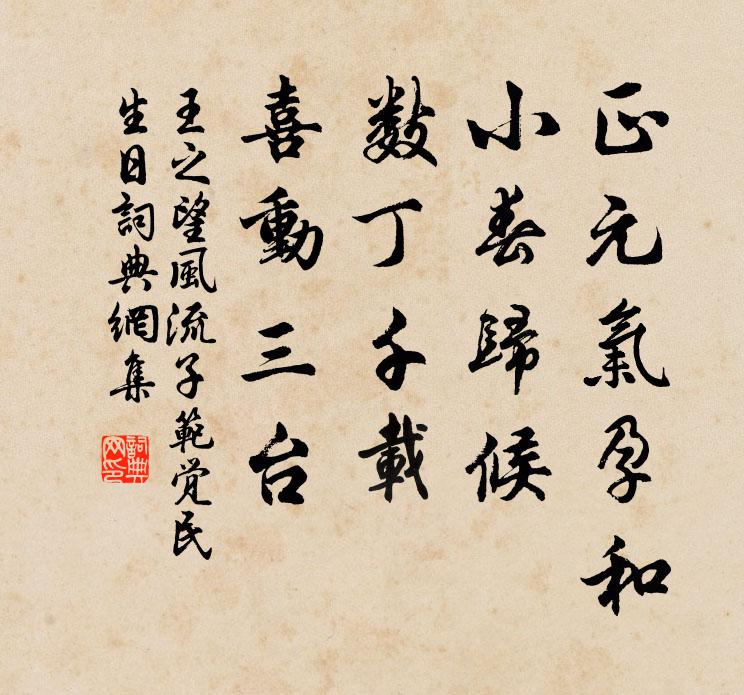 正元氣孕和
小春歸候
數丁千載
喜動三台
王之望風流子範覚民
生日詞典網集
詞典网印